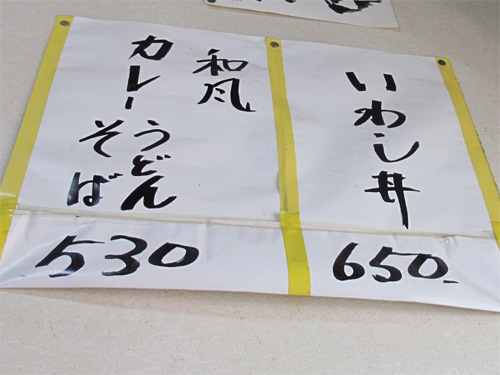 いわし丼
650
和風
カレー
うどん
そば
530